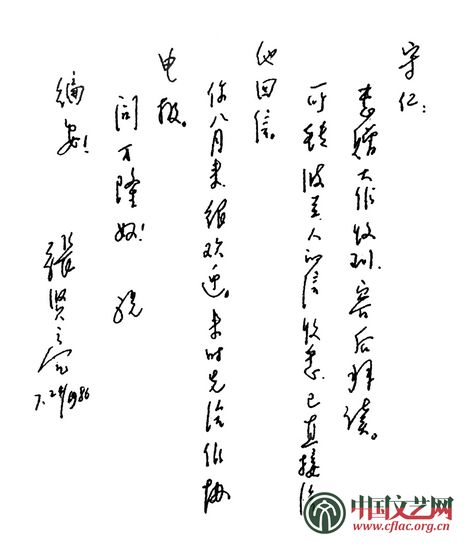 守仁：
惠赠大作收到.容后拜读。
转人的信收悉.已直接给
他回信。
你八月来.欢迎。来时先给作协
电报。
问万隆好！ 祝
编安！
张贤亮
7.24/1986
中国文艺网
www.cflac.org.cn